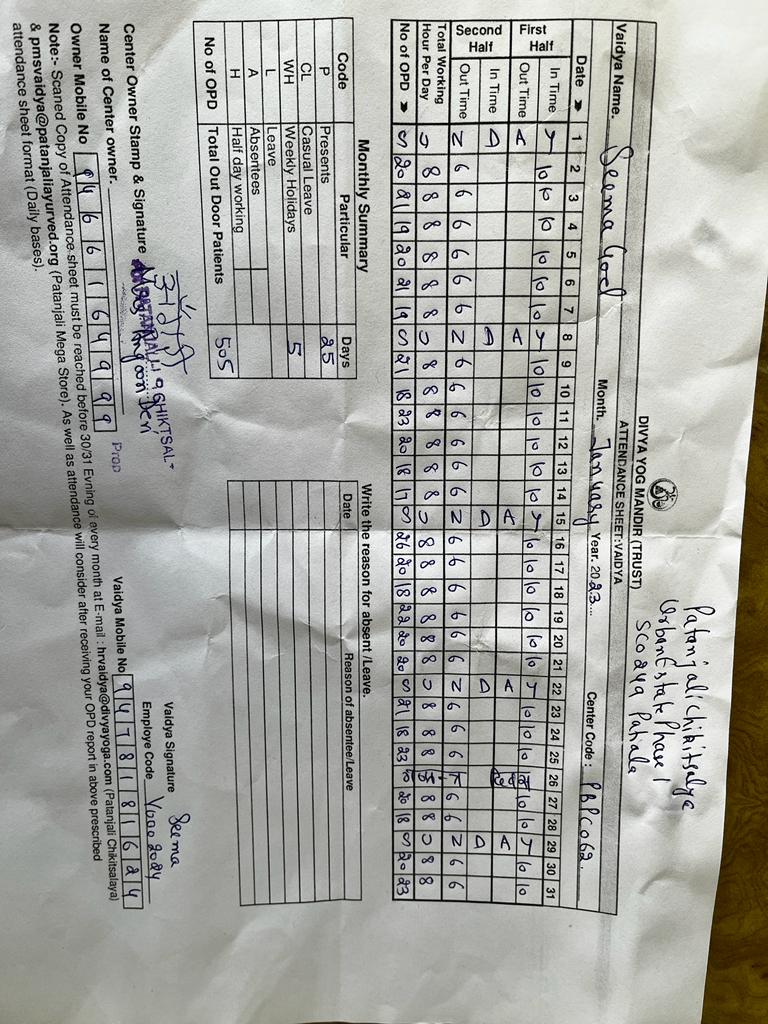 Patanjali chikitsalya
Urban Estate Phase 1
SCO 249 Patiala
DIVYA YOG MANDIR (TRUST)
ATTENDANCE SHEET:VAIDYA
Vaidya Name. Seema Goel Month. January Year. 2023.... Center Code : PBPC062.
Date 1 2 3 4 5 6 7 8 9 10 11 12 13 14 15 16 17 18 19 20 21 22 23 24 25 26 27 28 29 30 31
First Half
In Time 10 10 10 10 10 10 10 10 10 10 10 10 10 10 10 10 10 10 10 10 10 10 10 10 10
Out Time
Second Half
In Time
Out Time 6 6 6 6 6 6 6 6 6 6 6 6 6 6 6 6 6 6 6 6 6 6 6 6 6
SUNDAY SUNDAY SUNDAY SUNDAY SUNDAY
Total Working
Hour Per Day 8 8 8 8 8 8 8 8 8 8 8 8 8 8 8 8 8 8 8 8 8 8 8 8 8
No of OPD 20 21 19 20 21 19 21 18 23 20 18 17 26 20 18 22 20 20 21 18 23 20 18 20 23
Monthly Summary
Code Particular Days
P Presents 25
CL Casual Leave
WH Weekly Holidays 5
L Leave
A Absentees
H Half day working
No of OPD Total Out Door Patients 505
Write the reason for absent /Leave.
Date Reason of absentee/Leave
Center Owner Stamp & Signature
Name of Center owner. Mrs Angoori Devi
Prop
Owner Mobile No 9466164999
Vaidya Signature Seema
Employe Code V0002024
Vaidya Mobile No 9478181624
Note:- Scaned Copy of Attendance sheet must be reached before 30/31 Evning of every month at E-mail : hrvaidya@divyayoga.com (Patanjali Chikitsalaya)
& pmsvaidya@patanjaliayurved.org (Patanjali Mega Store). As well as attendance will consider after receiving your OPD report in above prescribed
attendance sheet format (Daily bases).